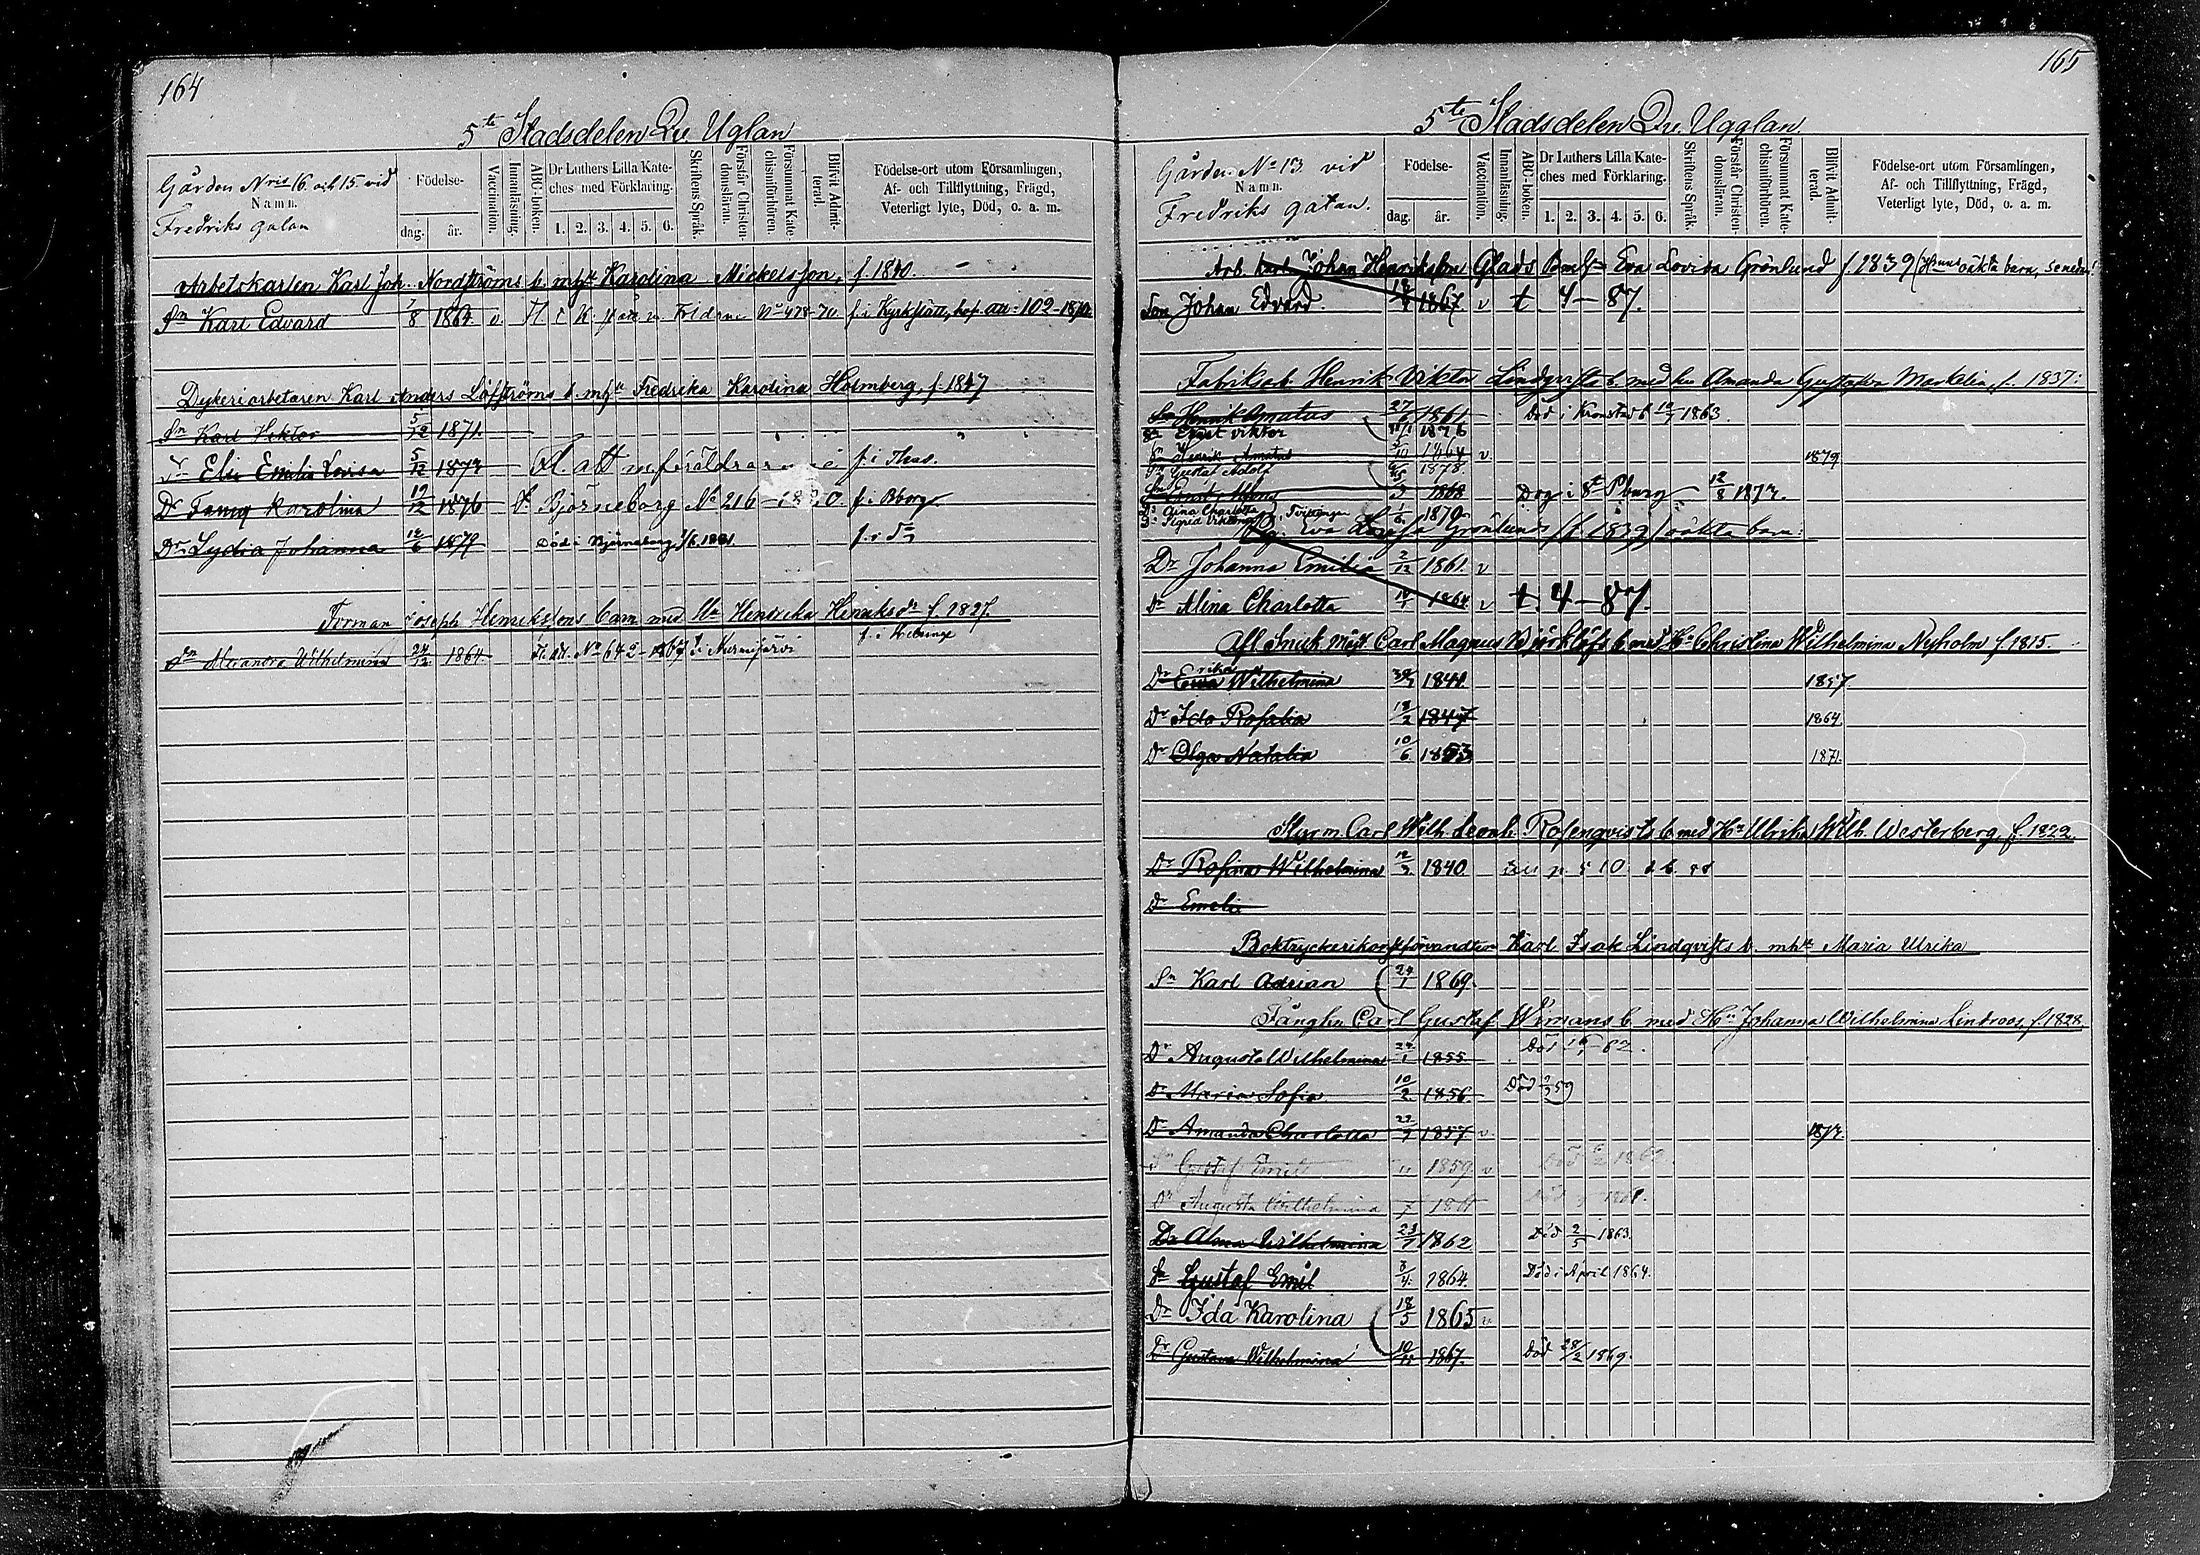 164
5te Stadsdelen Qv. Uglan
Gården Nris 16 och 15 vid
Namn.
Fredriks gatan
Födelse-
dag. år.
Vaccination.
Innanläsning.
ABC-boken.
Dr Luthers Lilla Kate-
ches med Förklaring.
1. 2. 3. 4. 5. 6.
Skriftens Språk.
Förstår Christen-
domsläran.
Försummat Kate-
chismiförhören.
Blifvit Admit-
terad.
Födelse-ort utom Församlingen,
Af- och Tillflyttning, Frägd,
Veterligt lyte, Död, o. a. m.
Arbetskarlen Karl Joh. Nordströms b. mhu Karolina Mickelsson, f. 1840.
Sn Karl Edvard 1/8 1864. v. No 478-70. f. i Kyrkslätt, att 102-1870
Dykeriarbetaren Karl Anders Löfströms b. mhu Fredrika Karolina Holmberg, f. 1847
Sn Karl Hektor 5/12 1871.
Dr Elin Emelia Lovisa 5/12 1874 Fl. att m föräldrarne f. i Thus.
Dr Fanny Karolina 19/12 1876 fr. Björneborg No 216-1880 f. i Bborg.
Dr Lydia Johanna 12/6 1879 Död i Björneborg 1/6 1881. f. i do
Forman Joseph Henrikssons barn med Hu Hendrika Henriksdr f. 1827.
Dr Alexandra Wilhelmina 24/12 1864. Fl. att. No 642-1867 i Nurmijärvi
165
5te Stadsdelen Qv. Ugglan
Gården No 13 vid
Namn.
Fredriks gatan.
Födelse-
dag. år.
Vaccination.
Innanläsning.
ABC-boken.
Dr Luthers Lilla Kate-
ches med Förklaring.
1. 2. 3. 4. 5. 6.
Skriftens Språk.
Förstår Christen-
domsläran.
Försummat Kate-
chismiförhören.
Blifvit Admit-
terad.
Födelse-ort utom Församlingen,
Af- och Tillflyttning, Frägd,
Veterligt lyte, Död, o. a. m.
Arb. Karl Johan Henriksson Glads Eva Lovisa Grönlund f. 1839 oäkta barn, se nedan!
Son Johan Edvard. 1867. v t. 4-87.
Fabriksarb. Henrik Viktor Lindqvists b. med hu Amanda Gustafva Markelin, f. 1837:
Sn Henrik Amatus 27/ 1861 Död i Kronstadt 1863.
Sn Ernst Viktor 1876
Sn Henrik Amatus 5/10 1864 v 1879
Sn Gustaf Adolf 1878
Sn Ernst 1868 Dog i St Pburg 12/8 1872.
Dr Aina Charlotta
Dr Sigrid Tvillingar 1870
Eva Grönlunds (f. 1839) oäkta barn:
Dr Johanna Emilia 2/12 1861. v
Dr Alina Charlotta 1864 v t. 4-87.
Afl. Snick. mäst. Carl Magnus Björklöfs b. med Hu Christina Wilhelmina Nyholm f. 1815.
Erika
Dr Wilhelmina 1841. 1857.
Dr Ida Rosalia 18/2 1847 1864.
Dr Olga Natalia 10/6 1853 1871.
Styrm. Carl Wilh. Leonh. Rosenqvists b. med Hu Ulrika Wilh. Westerberg, f. 1822
Dr Rosina Wilhelmina 12/3 1840 p. 510
Dr Emelie
Boktryckerikonstförvandten Karl Isak Lindqvists b. mhu Maria Ulrika
Sn Karl Adrian 24/1 1869.
Fånglen. Carl Gustaf Wimans b. med Hu Johanna Wilhelmina Lindroos, f. 1828
Dr Augusta Wilhelmina 24/1 1855 Död 62.
Dr Maria Sofia 10/2 1856 Död 59
Dr Amanda Charlotta 27/7 1857 v. 1872.
Sn Gustaf Emil 1859. v Död
Dr Augusta Wilhelmina Död
Dr Alma Wilhelmina 23/7 1862 Död 2/5 1863.
Sn Gustaf Emil 3/4 1864. Död i April 1864.
Dr Ida Karolina 18/5 1865 v
Dr Gustava Wilhelmina 10/11 1867. Död 28/2 1869.